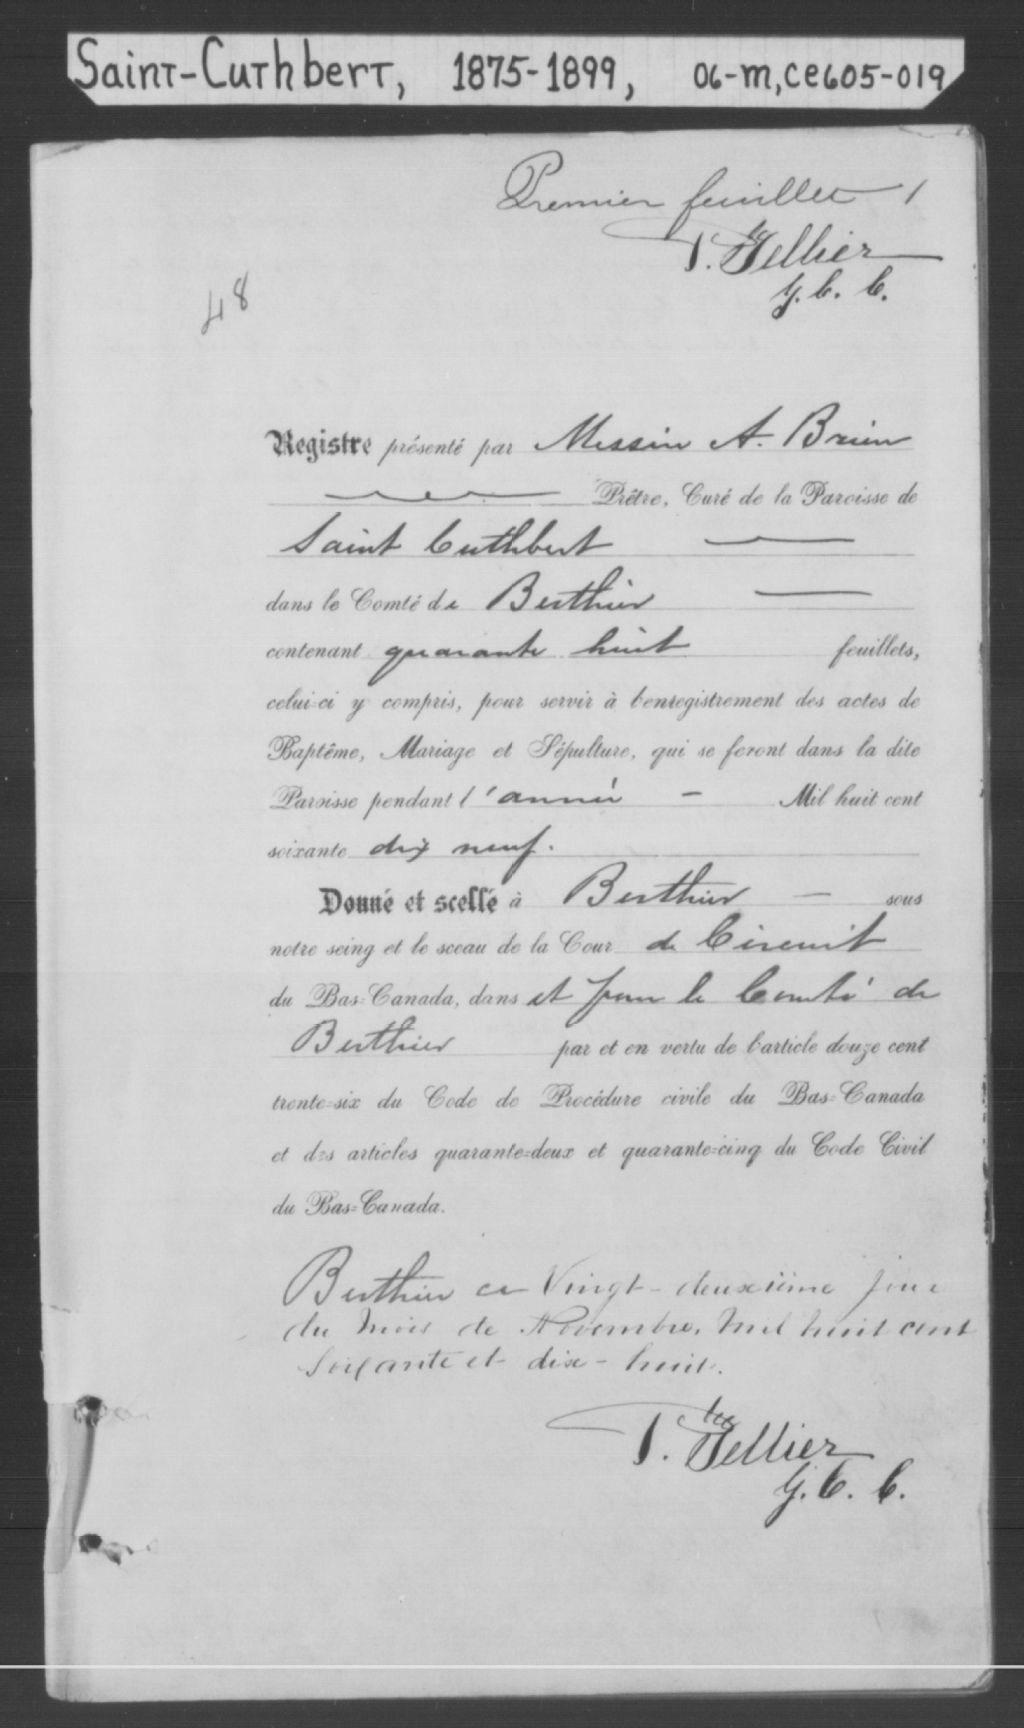 Saint-Cuthbert, 1875-1899, 06-M,CE605-019
Premier feuillet 1
P. Tellier
G. C. C.
48
Registre présenté par Messire A. Brien
Prêtre, Curé de la Paroisse de
Saint Cuthbert
dans le Comté de Berthier
contenant quarante huit feuillets,
celui-ci y compris, pour servir à l'enregistrement des actes de
Baptême, Mariage et Sépulture, qui se feront dans la dite
Paroisse pendant l'année - Mil huit cent
soixante dix neuf.
Donné et scellé à Berthier — sous
notre seing et le sceau de la Cour de Circuit
du Bas-Canada, dans et pour le Comté de
Berthier par et en vertu de l'article douze cent
trente-six du Code de Procédure civile du Bas-Canada
et des articles quarante-deux et quarante-cinq du Code Civil
du Bas-Canada.
Berthier ce Vingt-deuxième jour
du mois de Novembre, Mil huit cent
Soixante et dix-huit.
Tellier
G. C. C.